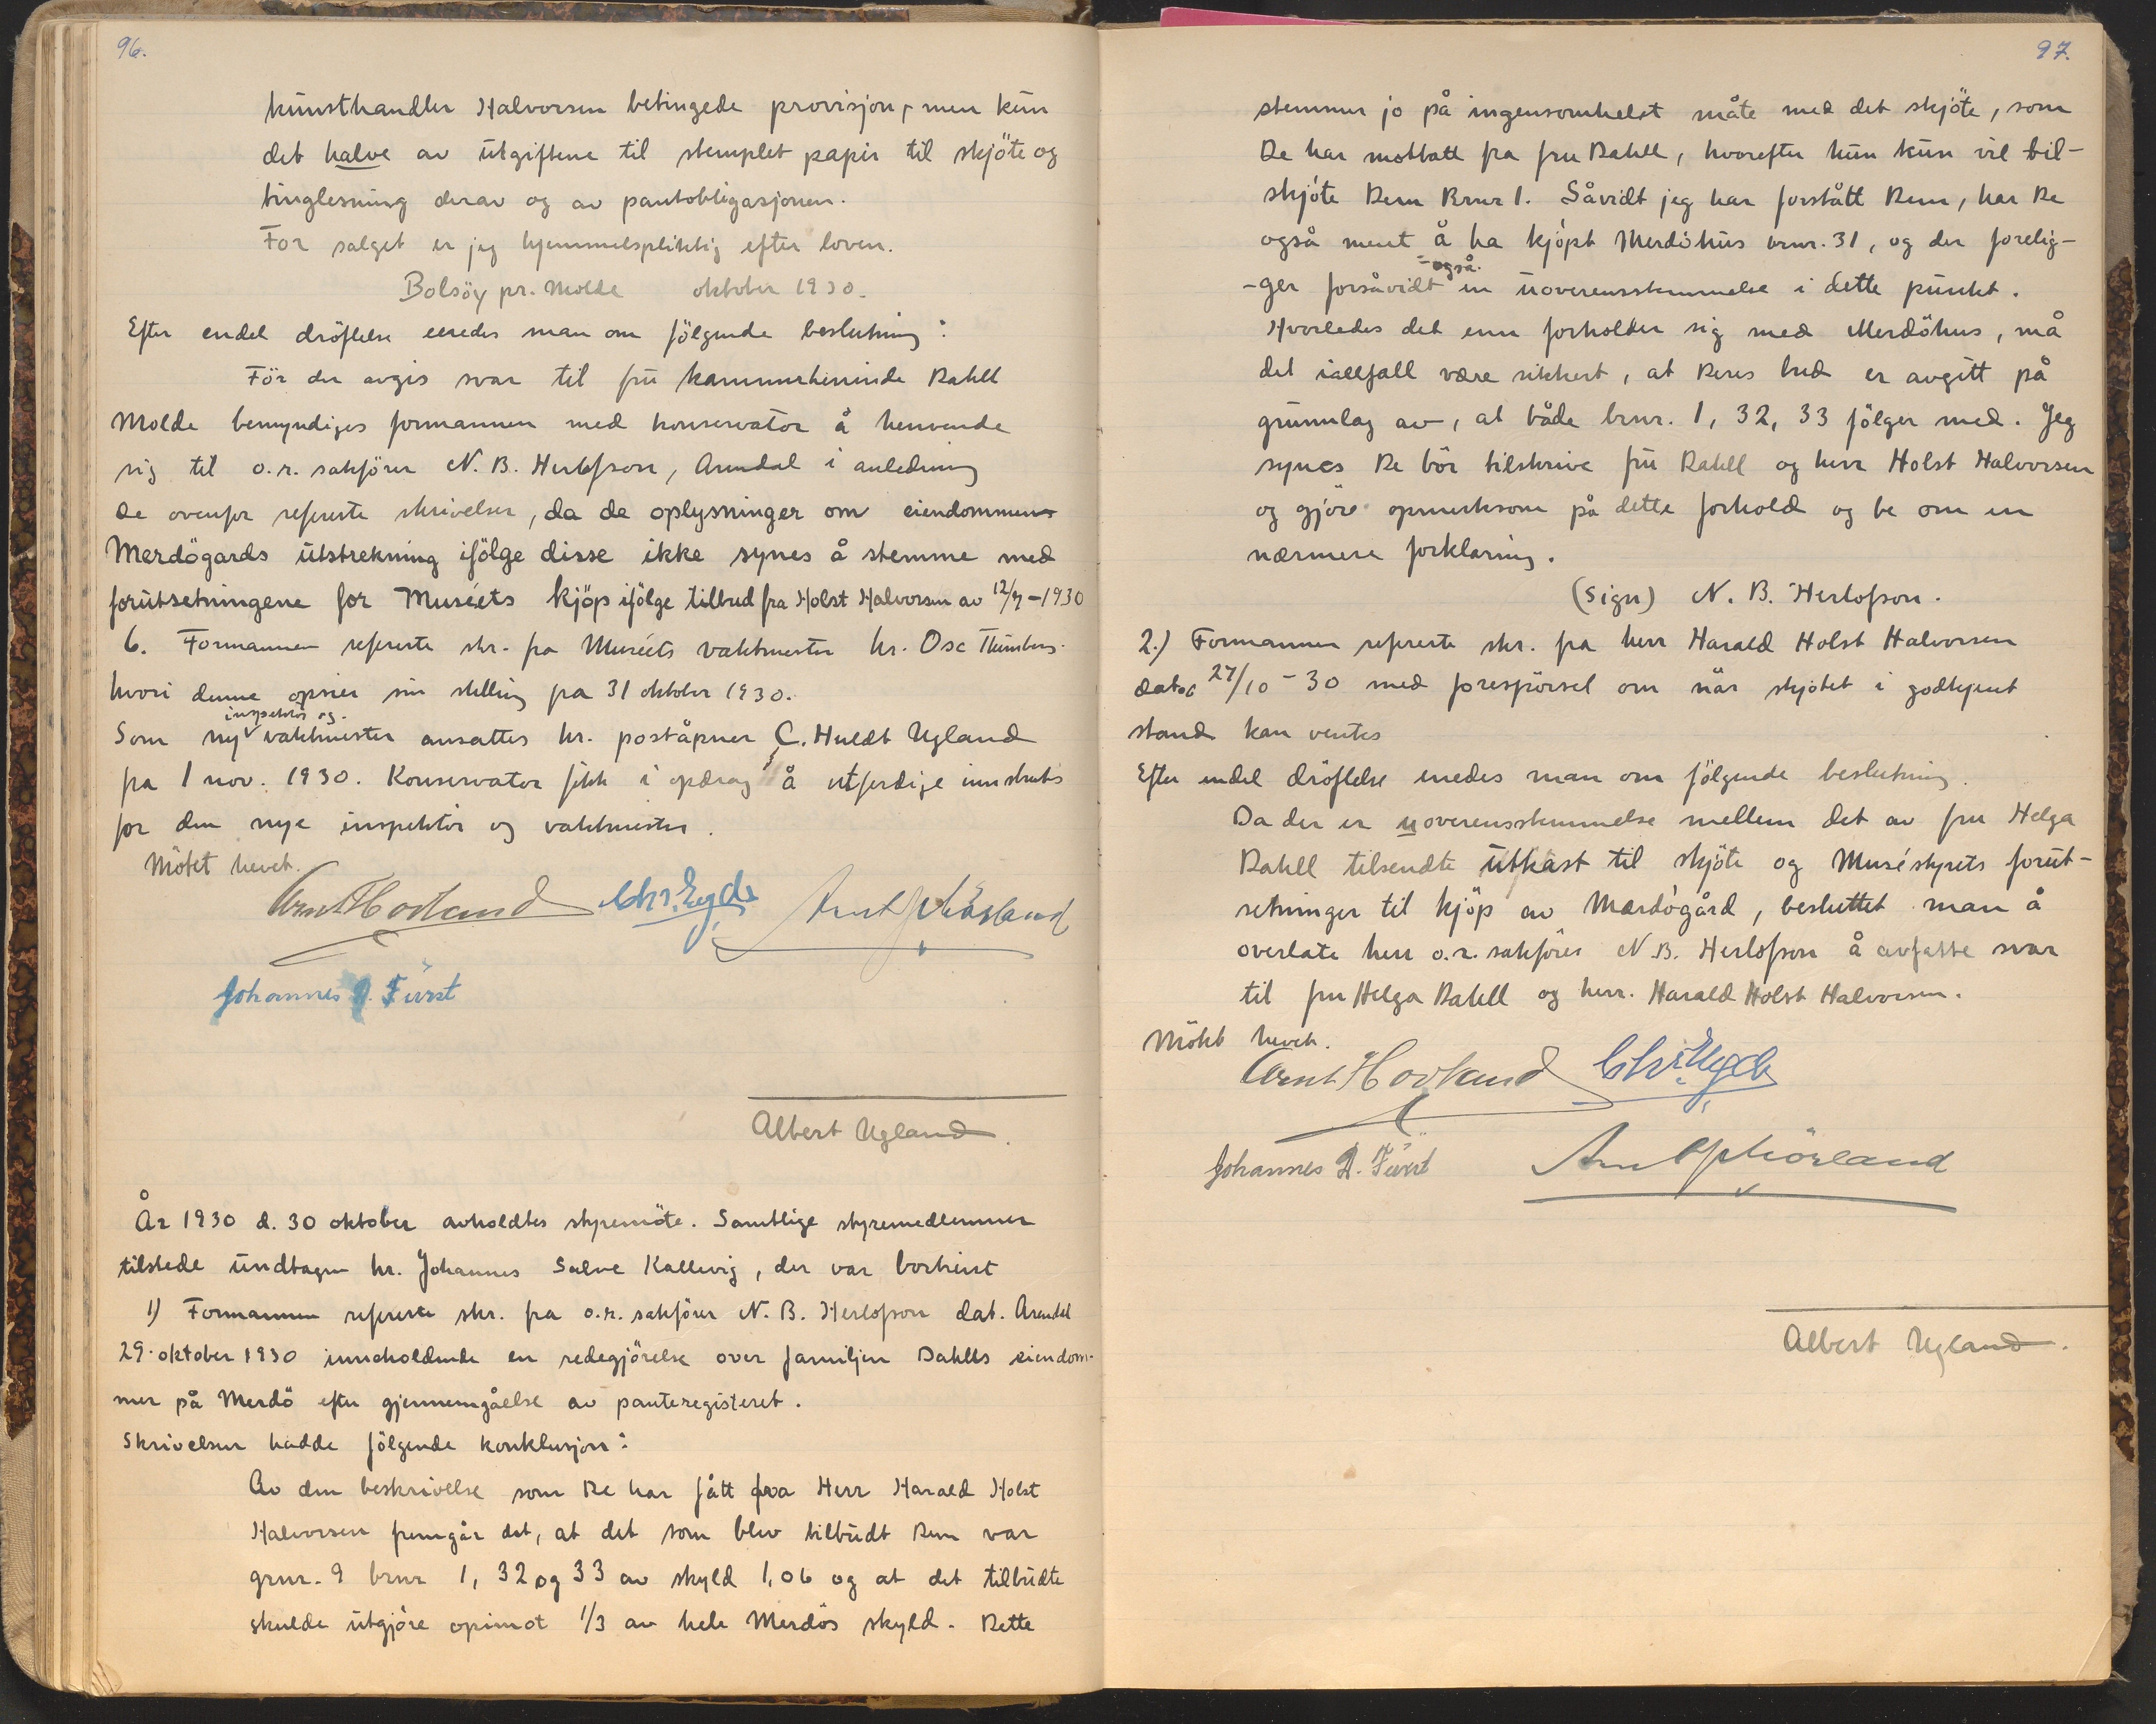 96.
kunsthandler Halvorsen betingede provisjon, men kun
det halve av utgiftene til stemplet papir til skjöte og
tinglesning derav og av pantobligasjonen.
For salget er jeg hjemmelspliktig efter loven.
Bolsöy pr. Molde oktober 1930.
Efter endel dröftelse enedes man om fölgende beslutning:
För der avgis svar til fru kammerherinde Dahll
Molde bemyndiges formannen med konservator å henvende
sig til o.r. sakförer N. B. Herlofson, Arendal i anledning
de ovenfor refererte skrivelser, da de oplysninger om eiendommens
Merdögards utstrekning ifölge disse ikke synes å stemme med
forutsetningene for Muséets kjöp ifölge tilbud fra Holst Halvorsen av 12/7-1930
6. Formannen refererte skr. fra Muséets vaktmester hr. Osc
hvori denne opsier sin stilling fra 31 oktober 1930.
inspektör og.
Som ny vaktmester ansattes hr. poståpner C. Huldt Ugland
fra 1 nov. 1930. Konservator fikk i opdrag å utferdige instruks
for den nye inspektör og vaktmester.
Mötet hevet.
Arnt Hovland Chr. Eyde Arnt J. Mörland
Johannes D. Fürst
Albert Ugland.
År 1930 d. 30 oktober avholdtes styremöte. Samtlige styremedlemmer
tilstede undtagen hr. Johannes Salve Kallevig, der var bortreist
1) Formannen refererte skr. fra o.r. sakförer N. B. Herlofson dat. Arendal
29. oktober 1930 inneholdende en redegjörelse over familjen Dahlls eiendom-
mer på Merdö efter gjennemgåelse av panteregisteret.
Skrivelsen hadde fölgende konklusjon:
Av den beskrivelse som De har fått fra Herr Harald Holst
Halvorsen fremgår det, at det som blev tilbudt Dem var
grnr. 9 brnr 1, 32 og 33 av skyld 1,06 og at det tilbudte
skulde utgjöre opimot 1/3 av hele Merdös skyld. Dette
97.
stemmer jo på ingensomhelst måte med det skjöte, som
De har mottatt fra fru Dahll, hvorefter hun kun vil til-
skjöte Dem Brnr 1. Såvidt jeg har forstått Dem, har De
også ment å ha kjöpt Merdöhus brnr. 31, og der forelig-
- også.
-ger forsåvidt en uoverensstemmelse i dette punkt.
Hvorledes det enn forholder sig med Merdöhus, må
det iallfall være sikkert, at Deres bud er avgitt på
grunnlag av, at både brnr. 1, 32, 33 fölger med. Jeg
synes De bör tilskrive fru Dahll og herr Holst Halvorsen
og gjöre opmerksom på dette forhold og be om en
nærmere forklaring.
(sign) N. B. Herlofson.
2.) Formannen refererte skr. fra herr Harald Holst Halvorsen
datec 27/10-30 med forespörsel om når skjötet i godkjent
stand kan ventes
Efter endel dröftelse enedes man om fölgende beslutning.
Da der er uoverensstemmelse mellem det av fru Helga
Dahll tilsendte utkast til skjöte og Muséstyrets forut-
setninger til kjöp av Mærdögård, besluttet man å
overlate herr o.r. sakförer N.B. Herlofson å avfatte svar
til fru Helga Dahll og herr. Harald Holst Halvorsen.
Mötet hevet.
Arnt Hovland Chr. Eyde
Johannes D. Fürst Arnt J. Mörland
Albert Ugland.